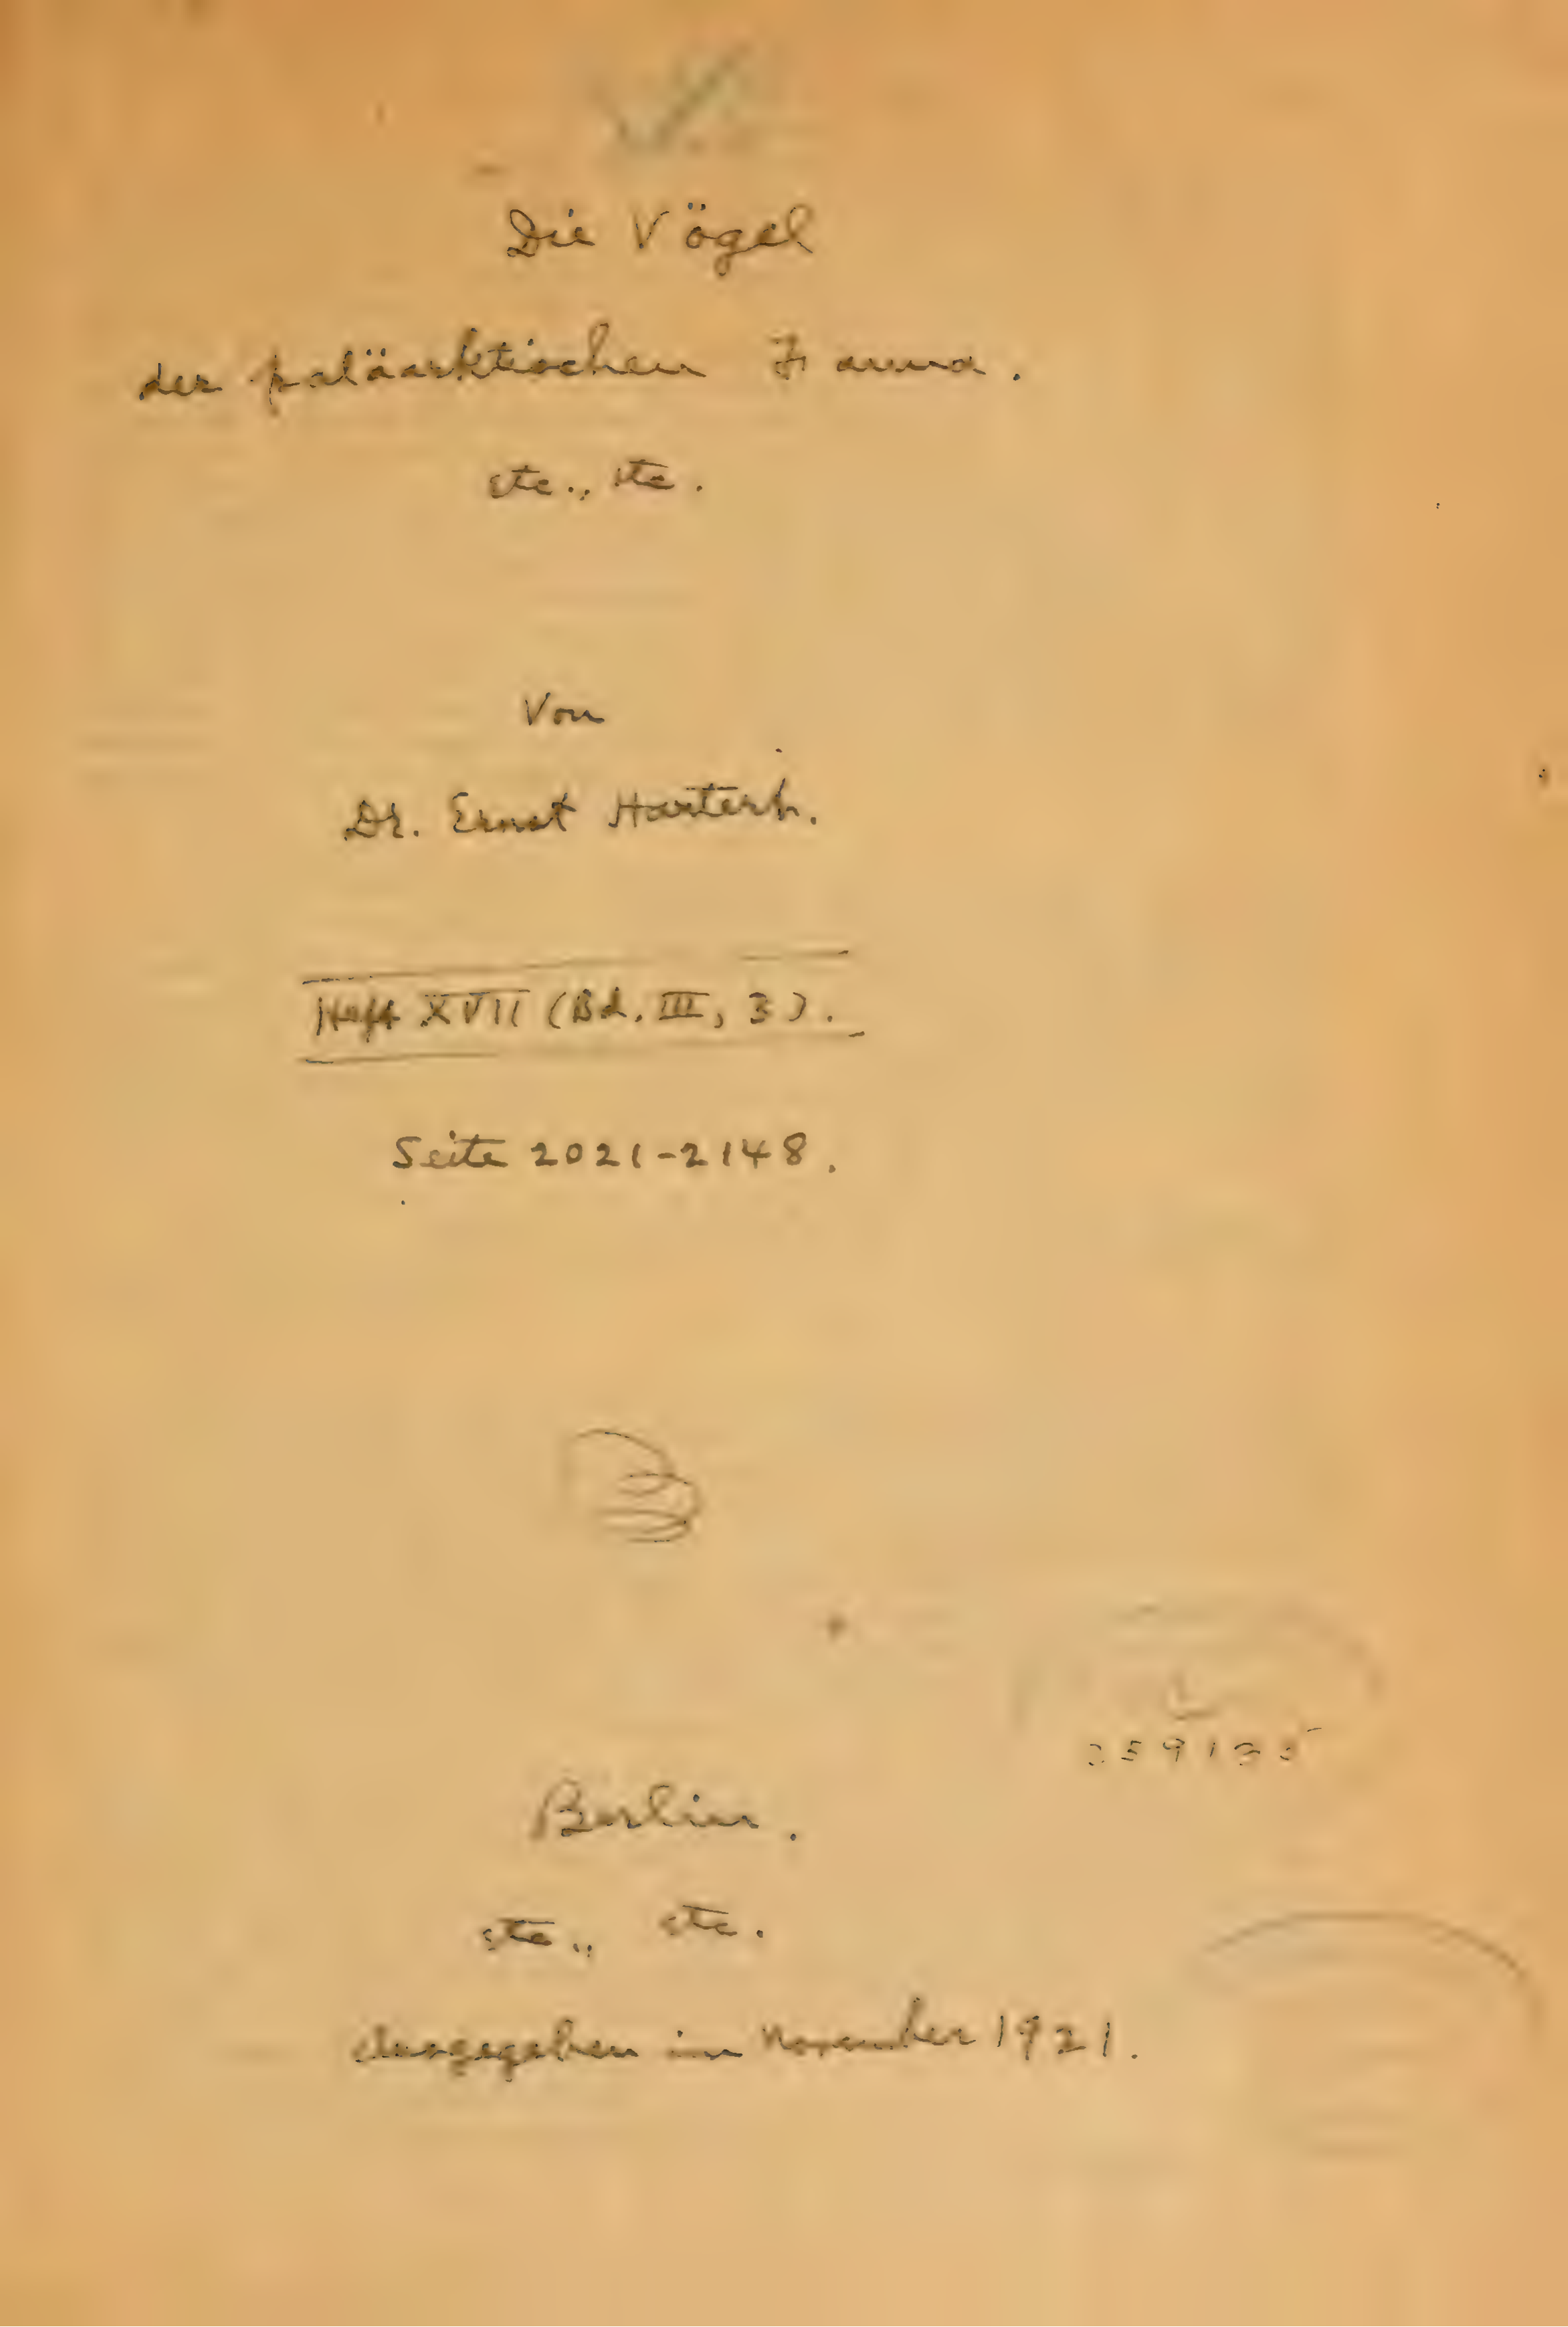 Die Vögel
der paläarktischen Fauna.
etc., etc.
Von
Dr. Ernst Hartert.
Heft XVII (Bd. III, 3).
Seite 2021-2148.
Berlin.
etc., etc.
Ausgegeben im November 1921.